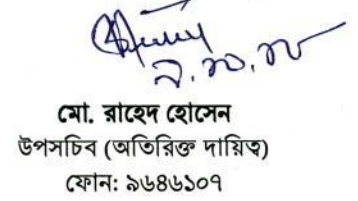 মো. রাহেদ হোসেন
উপসচিব (অতিরিক্ত দায়িত্ব)
ফোন: ৯৬৪৬১০৭